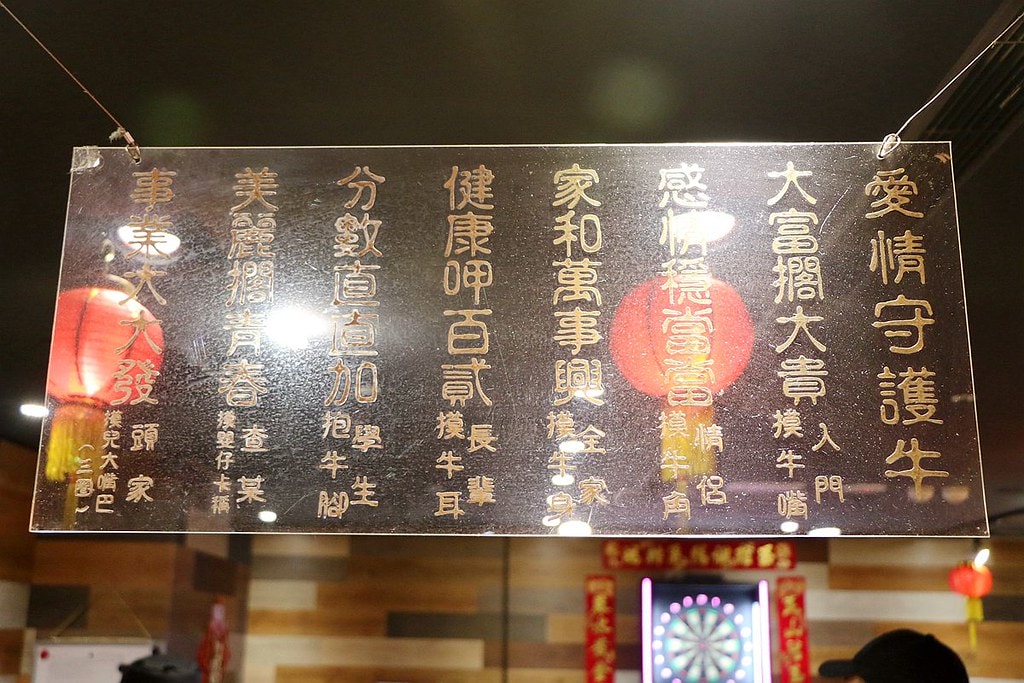 愛情守護牛
大富擱大貴
入門
摸牛嘴
感情穩當當
情侶
摸牛角
家和萬事興
全家
摸牛身
健康呷百貳
長輩
摸牛耳
分數直直加
學生
抱牛腳
美麗擱青春
查某
仔卡稱
事業大大發
頭家
摸兒大嘴巴
（三圈）